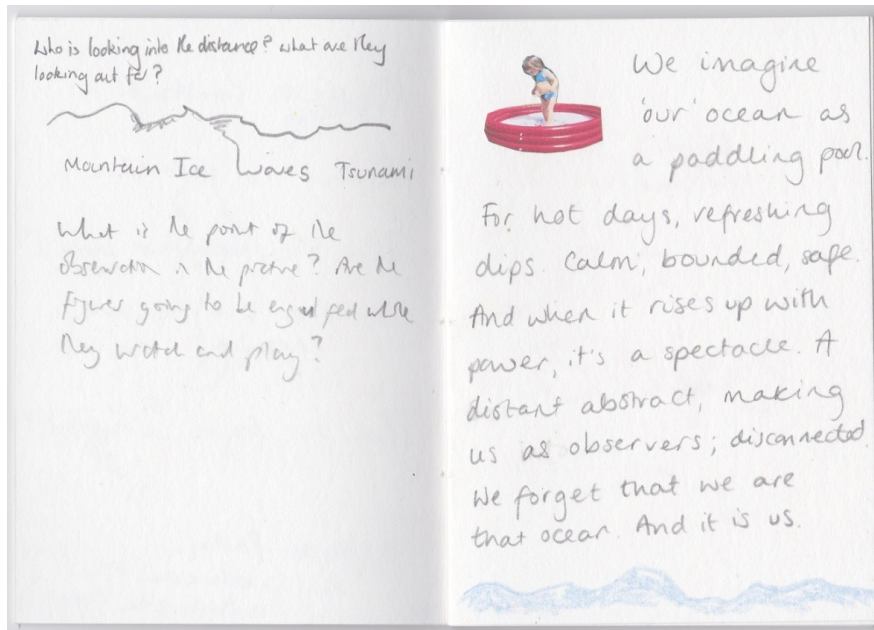 Who is looking into the distance? What are they
looking out for?
Mountain Ice Waves Tsunami
What is the point of the
observation in the picture? Are the
figures going to be engulfed while
they watch and play?
We imagine
'our' ocean as
a paddling pool.
For hot days, refreshing
dips. Calm, bounded, safe.
And when it rises up with
power, it's a spectacle. A
distant abstract, making
us as observers; disconnected.
We forget that we are
that ocean. And it is us.